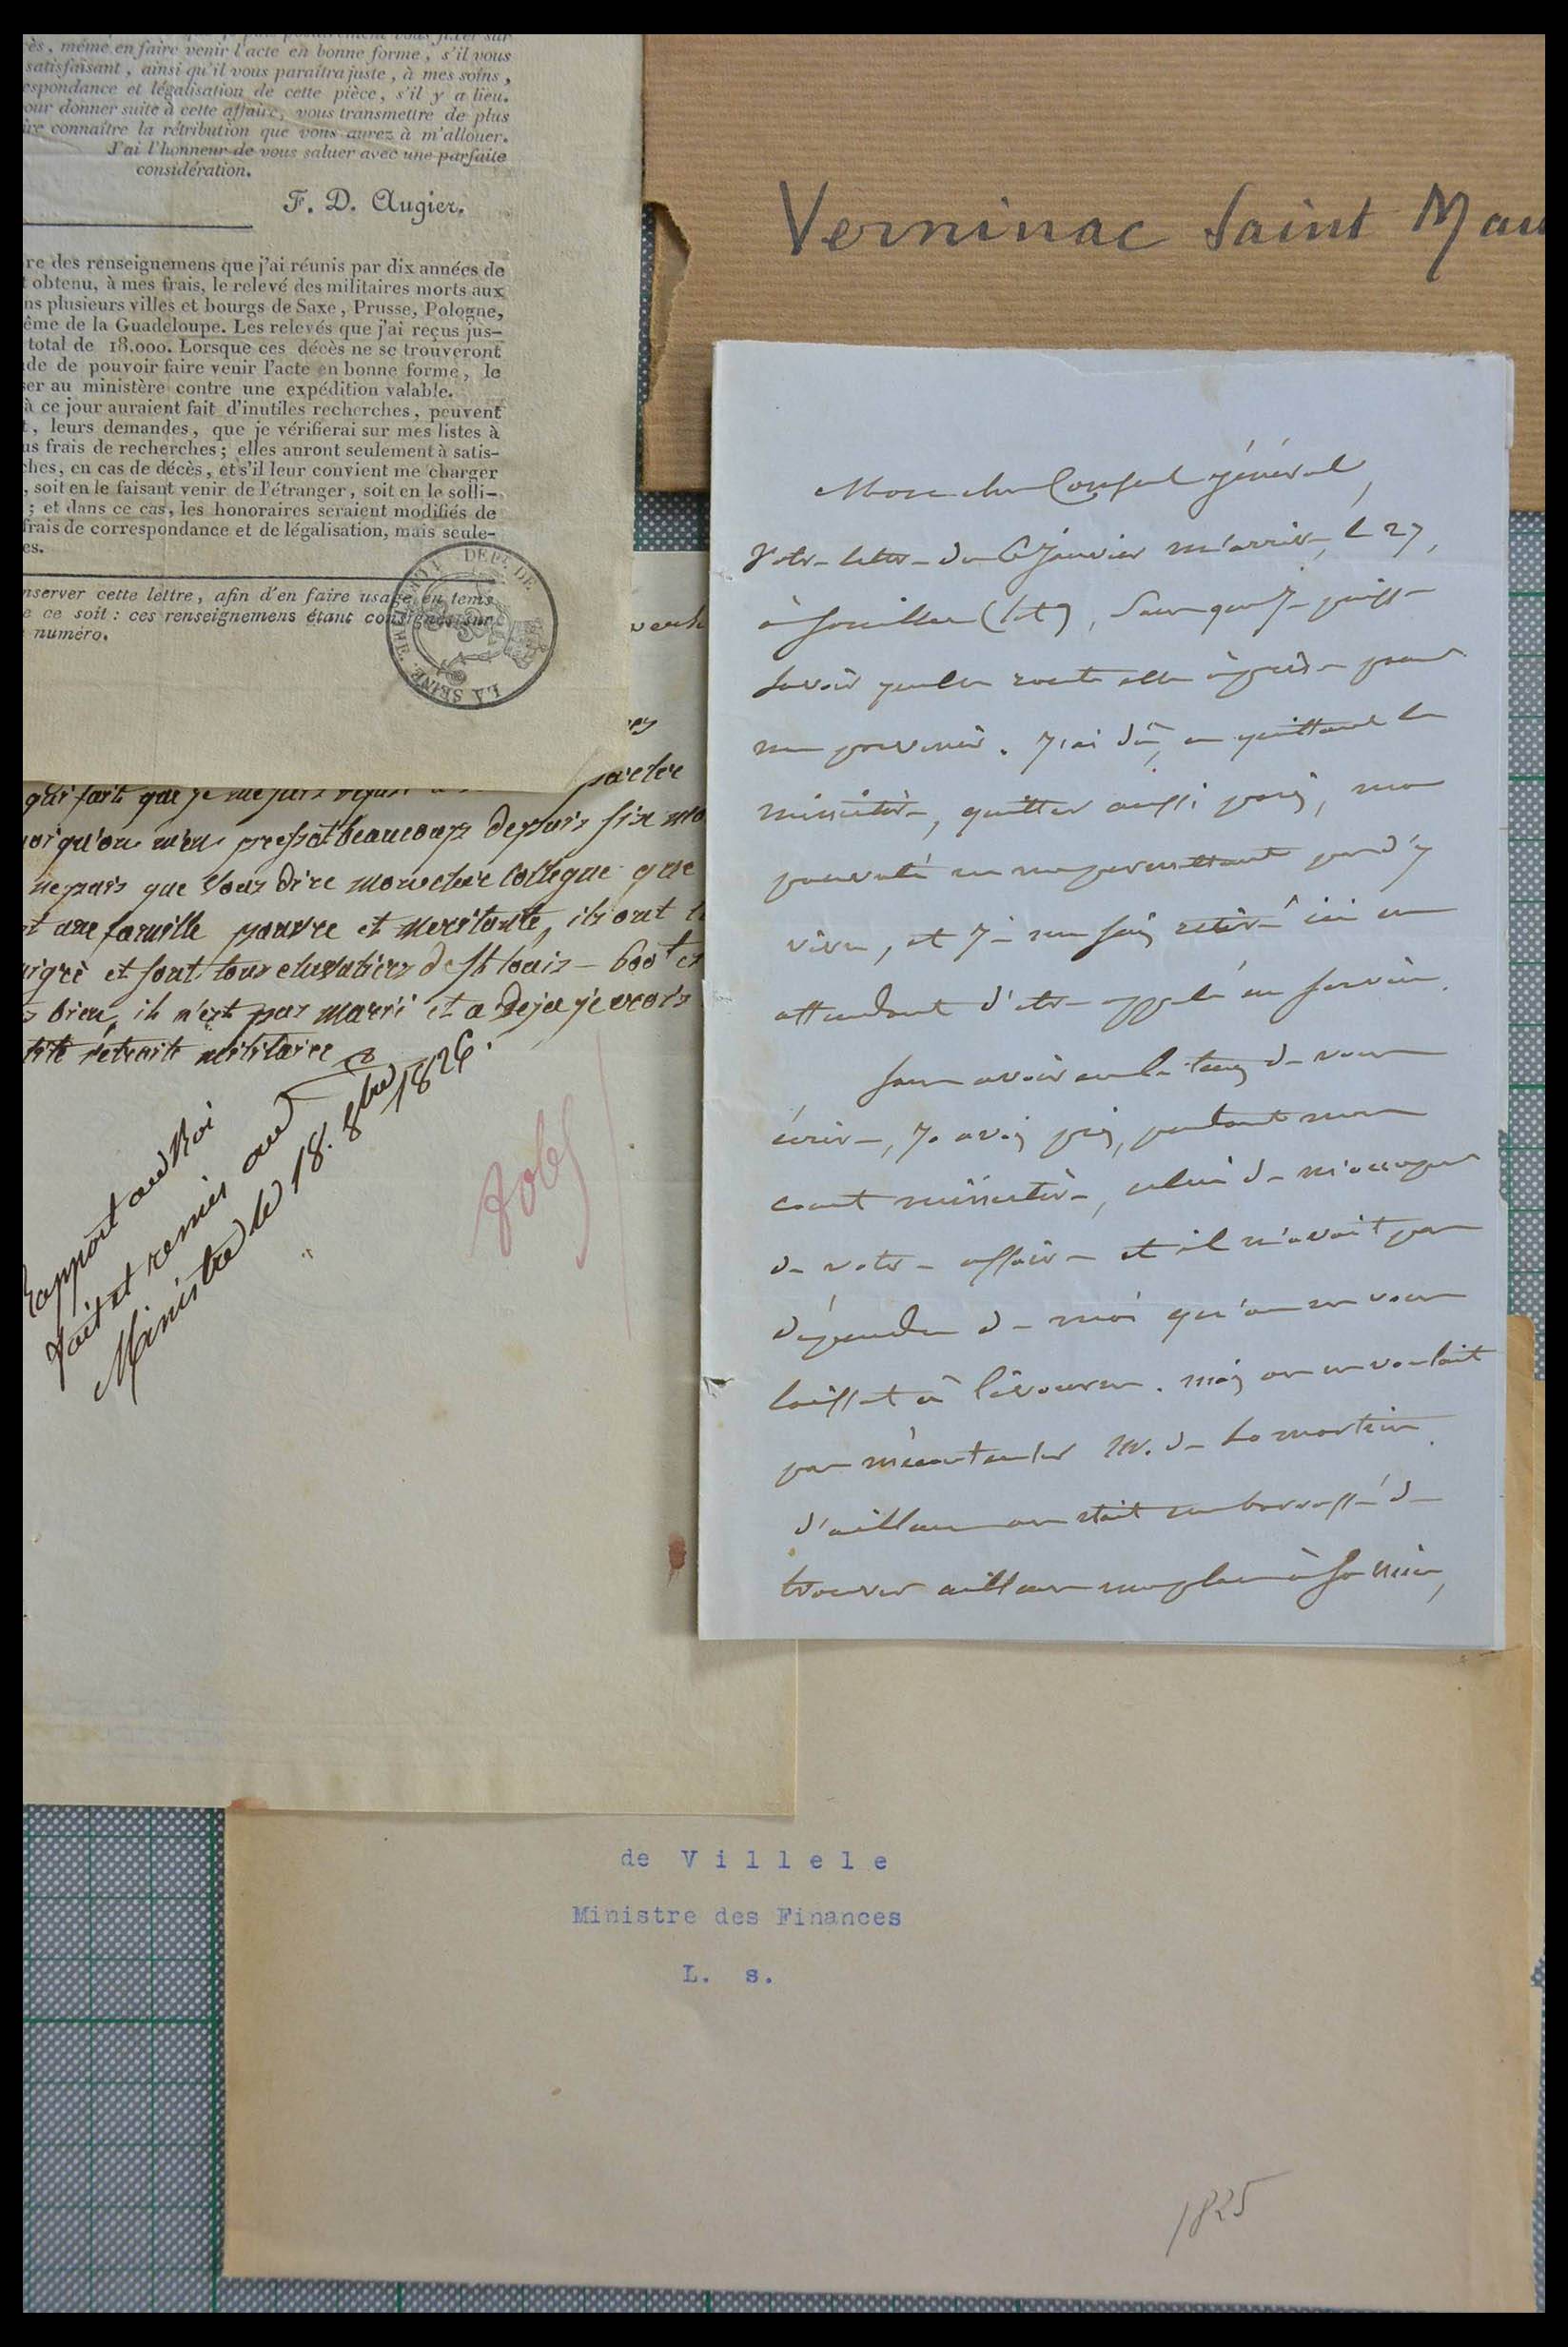 ès, même en faire venir l'acte en bonne forme, s'il vous
satisfaisant, ainsi qu'il vous paraîtra juste, à mes soins,
espondance et légalisation de cette pièce, s'il y a lieu.
our donner suite à cette affaire, vous transmettre de plus
ire connaître la rétribution que vous aurez à m'allouer.
J'ai l'honneur de vous saluer avec une parfaite
considération.
F. D. Augier.
re des renseignemens que j'ai réunis par dix années de
t obtenu, à mes frais, le relevé des militaires morts aux
ns plusieurs villes et bourgs de Saxe, Prusse, Pologne,
ême de la Guadeloupe. Les relevés que j'ai reçus jus-
total de 18.000. Lorsque ces décès ne se trouveront
de de pouvoir faire venir l'acte en bonne forme, le
ser au ministère contre une expédition valable.
à ce jour auraient fait d'inutiles recherches, peuvent
t, leurs demandes, que je vérifierai sur mes listes à
us frais de recherches; elles auront seulement à satis-
ches, en cas de décès, et s'il leur convient me charger
, soit en le faisant venir de l'étranger, soit en le solli-
; et dans ce cas, les honoraires seraient modifiés de
frais de correspondance et de légalisation, mais seule-
es.
nserver cette lettre, afin d'en faire usage en tems
e ce soit: ces renseignemens étant consignés sur
numéro.
DEPT. DE LA SEINE
qui fait que je me suis
parler
oi qu'on m'en pressat beaucoup depuis six mo
ne puis que vous dire mon cher collegue que
t une famille pauvre et meritante, ils ont
igré et sont tous chevaliers de St louis – 600 f
s bien, il n'est pas marrié et a deja je crois
tite retraite militaire
Rapport au Roi
fait et remis au
Ministre le 18. 8bre 1826.
Verninac Saint Mau
Mon cher Consul général,
Votre lettre du 6 Janvier m'arrive, le 27,
à Souillac (lot), sans que je puisse
savoir quelle route elle a prise pour
me parvenir. J'ai dû, en quittant le
ministère, quitter aussi paris, ma
pauvreté ne me permettant pas d'y
vivre, et je me suis retiré ici en
attendant d'être appelé au service.
Sans avoir eu le tems de vous
écrire, j'avais pris, pendant mon
court ministère, celui de m'occuper
de votre affaire et il n'avait pas
dépendu de moi qu'on ne vous
laissat à livourne. mais on ne voulait
pas mécontenter M. de Lamartine.
d'ailleurs on était embarrassé de
trouver ailleurs une place à
de Villele
Ministre des Finances
L. s.
1825